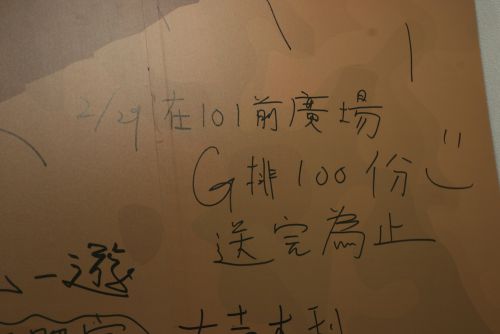 2/29 在101前廣場
G排100份
送完為止
一遊
大吉大利